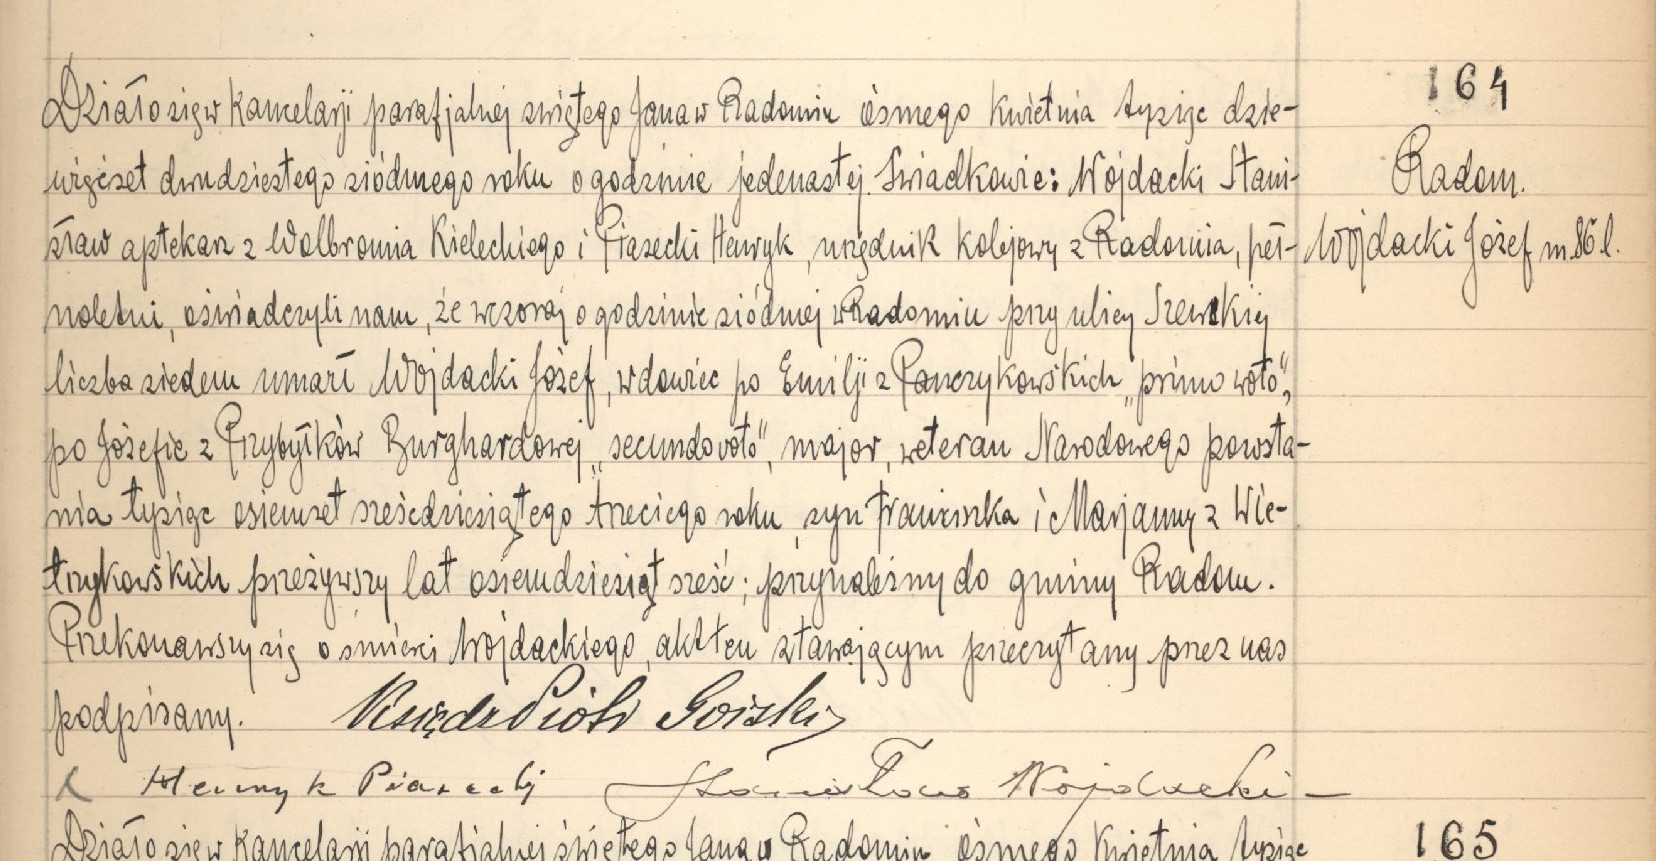 164
Działo się w Kancelarji parafjalnej świętego Jana w Radomiu ósmego Kwietnia tysiąc dzie-
więćset dwudziestego siódmego roku o godzinie jedenastej. Świadkowie: Wojdacki Stani-
Radom.
sław aptekarz z Wolbromia Kieleckiego i Piasecki Henryk, urzędnik kolejowy z Radomia, peł-
Wojdacki Józef m. 86 l.
noletni, oświadczyli nam, że wczoraj o godzinie siódmej w Radomiu przy ulicy Szewskiej
liczba siedem umarł Wojdacki Józef, wdowiec po Emilji z Panczykowskich „primo voto",
po Józefie z Przybytków Burghardowej „secundo voto", major, weteran Narodowego powsta-
nia tysiąc osiemset sześćdziesiątego trzeciego roku, syn Franciszka i Marjanny z Wie-
trzykowskich przeżywszy lat osiemdziesiąt sześć; przynależny do gminy Radom.
Przekonawszy się o śmierci Wojdackiego, akt ten stawającym przeczytany przez nas
podpisany. Ksiądz Piotr Górski
Henryk Piasecki Stanisław Wojdacki
Działo się w Kancelarji parafjalnej świętego Jana w Radomiu ósmego Kwietnia tysiąc
165